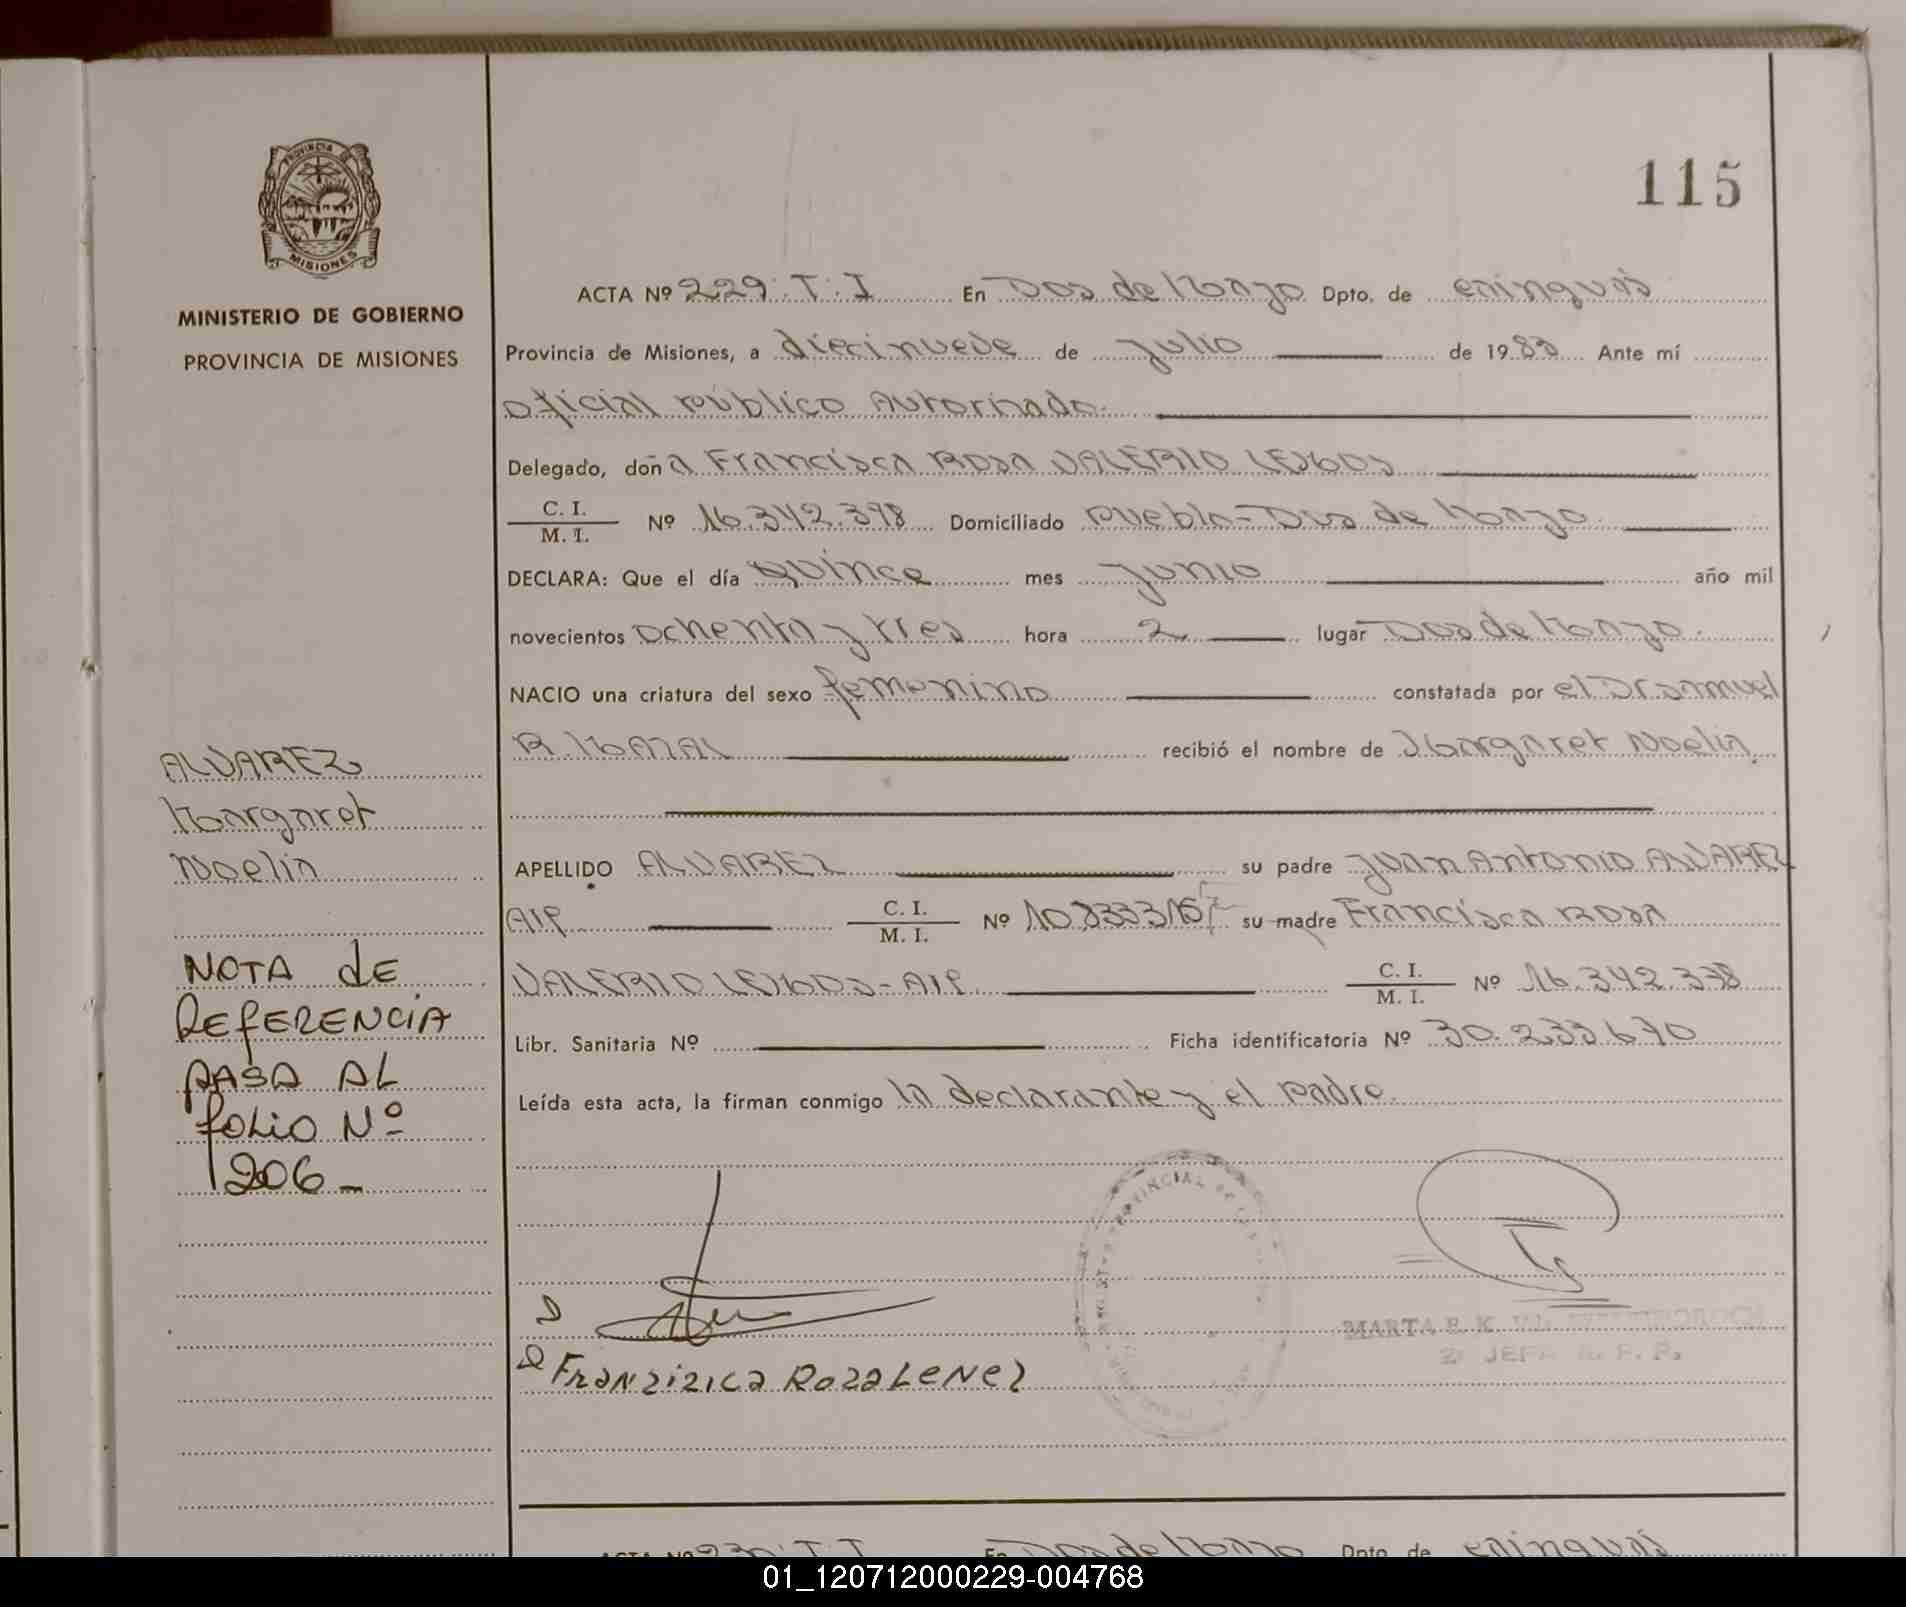 115
PROVINCIA DE
MISIONES
MINISTERIO DE GOBIERNO
PROVINCIA DE MISIONES
ACTA Nº 229. T. I En Dos de Marzo Dpto. de
Provincia de Misiones, a diecinueve de julio de 1983 Ante mí
oficial público Autorizado
Delegado, doña Francisca Rosa VALERIO LEMOS
C. I.
M. I. Nº 16.342.398 Domiciliado Pueblo-Dos de Marzo
DECLARA: Que el día quince mes junio año mil
novecientos ochenta y tres hora 2 lugar Dos de Marzo.
NACIO una criatura del sexo femenino constatada por el Dr
R. recibió el nombre de Margaret Noelia
APELLIDO ALVAREZ su padre Juan Antonio ALVAREZ
C. I.
M. I. Nº su madre Francisca Rosa
VALERIO LEMOS- C. I.
M. I. Nº 16.342.338
Libr. Sanitaria Nº Ficha identificatoria Nº 30.233.670
Leída esta acta, la firman conmigo la declarante y el padre.
ALVAREZ
Margaret
Noelia
NOTA de
REfERENCiA
PASA AL
fOLiO Nº
206-
PROVINCIAL
MARTA E. K.
JEFA R. P. P.
FRANZIZICA ROZALENEZ
ACTA Nº 230. T. I En Dos de Marzo Dpto. de
01_120712000229-004768